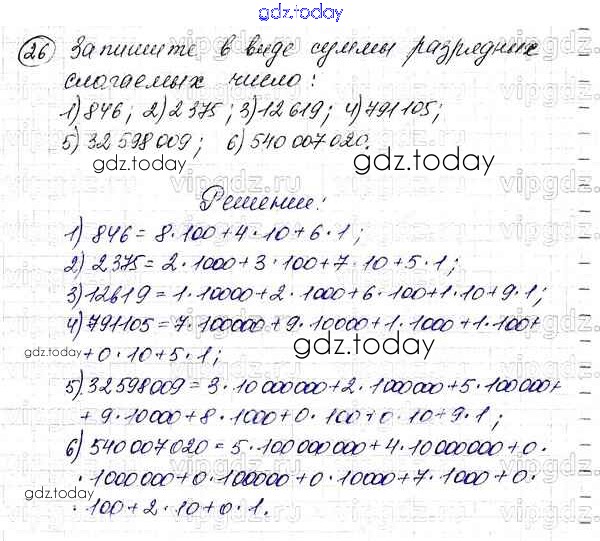 gdz.today
26 Запишите в виде суммы разрядных
слагаемых число:
1) 846; 2) 2375; 3) 12619; 4) 791105;
5) 32598009; 6) 540007020.
gdz.today
gdz.today
Решение:
1) 846 = 8·100+4·10+6·1;
2) 2375 = 2·1000+3·100+7·10+5·1;
3) 12619 = 1·10000+2·1000+6·100+1·10+9·1;
4) 791105 = 7·100000+9·10000+1·1000+1·100+
gdz.today + 0·10+5·1; gdz.today
5) 32598009 = 3·10000000+2·1000000+5·100000+
+ 9·10000+8·1000+0·100+0·10+9·1;
6) 540007020 = 5·100000000+4·10000000+0·
·1000000+0·100000+0·10000+7·1000+0·
gdz.today
·100+2·10+0·1.